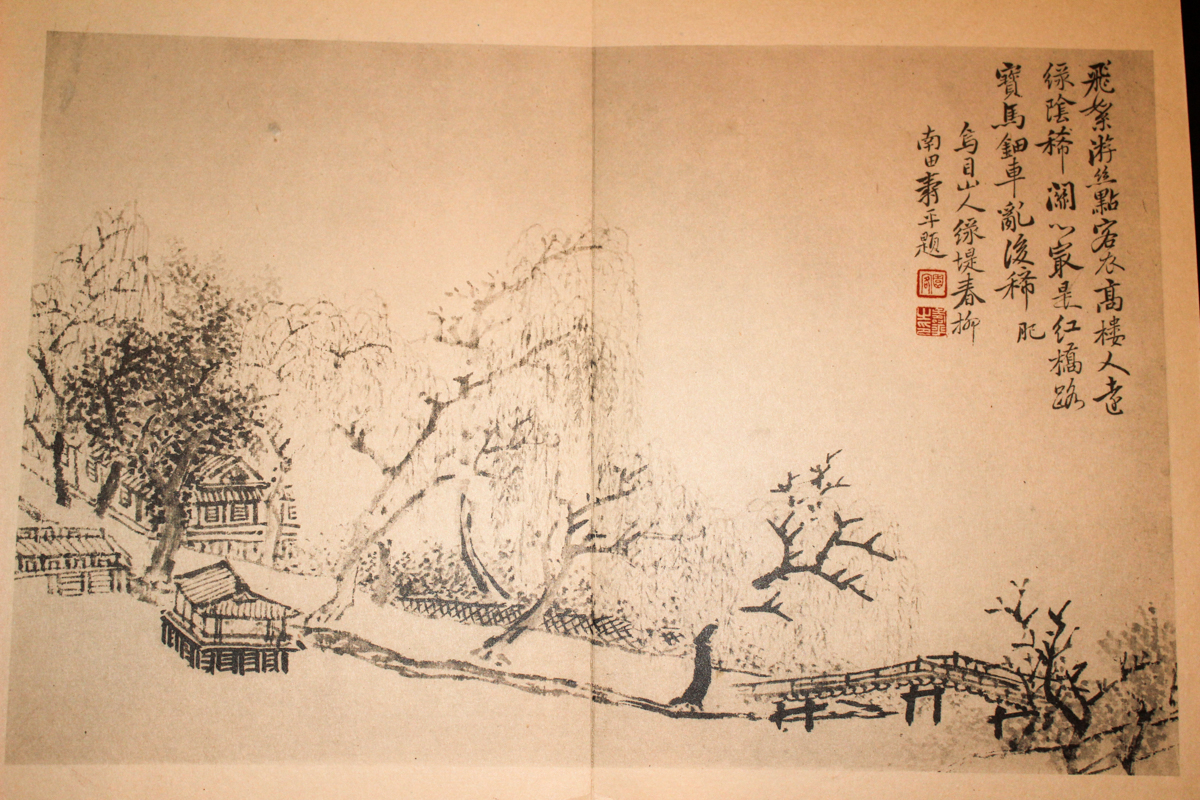 飛絮游絲點客衣高樓人遠
綠陰稀關心最是紅橋路
寶馬鈿車亂後稀 肥
烏目山人綠堤春柳
南田壽平題